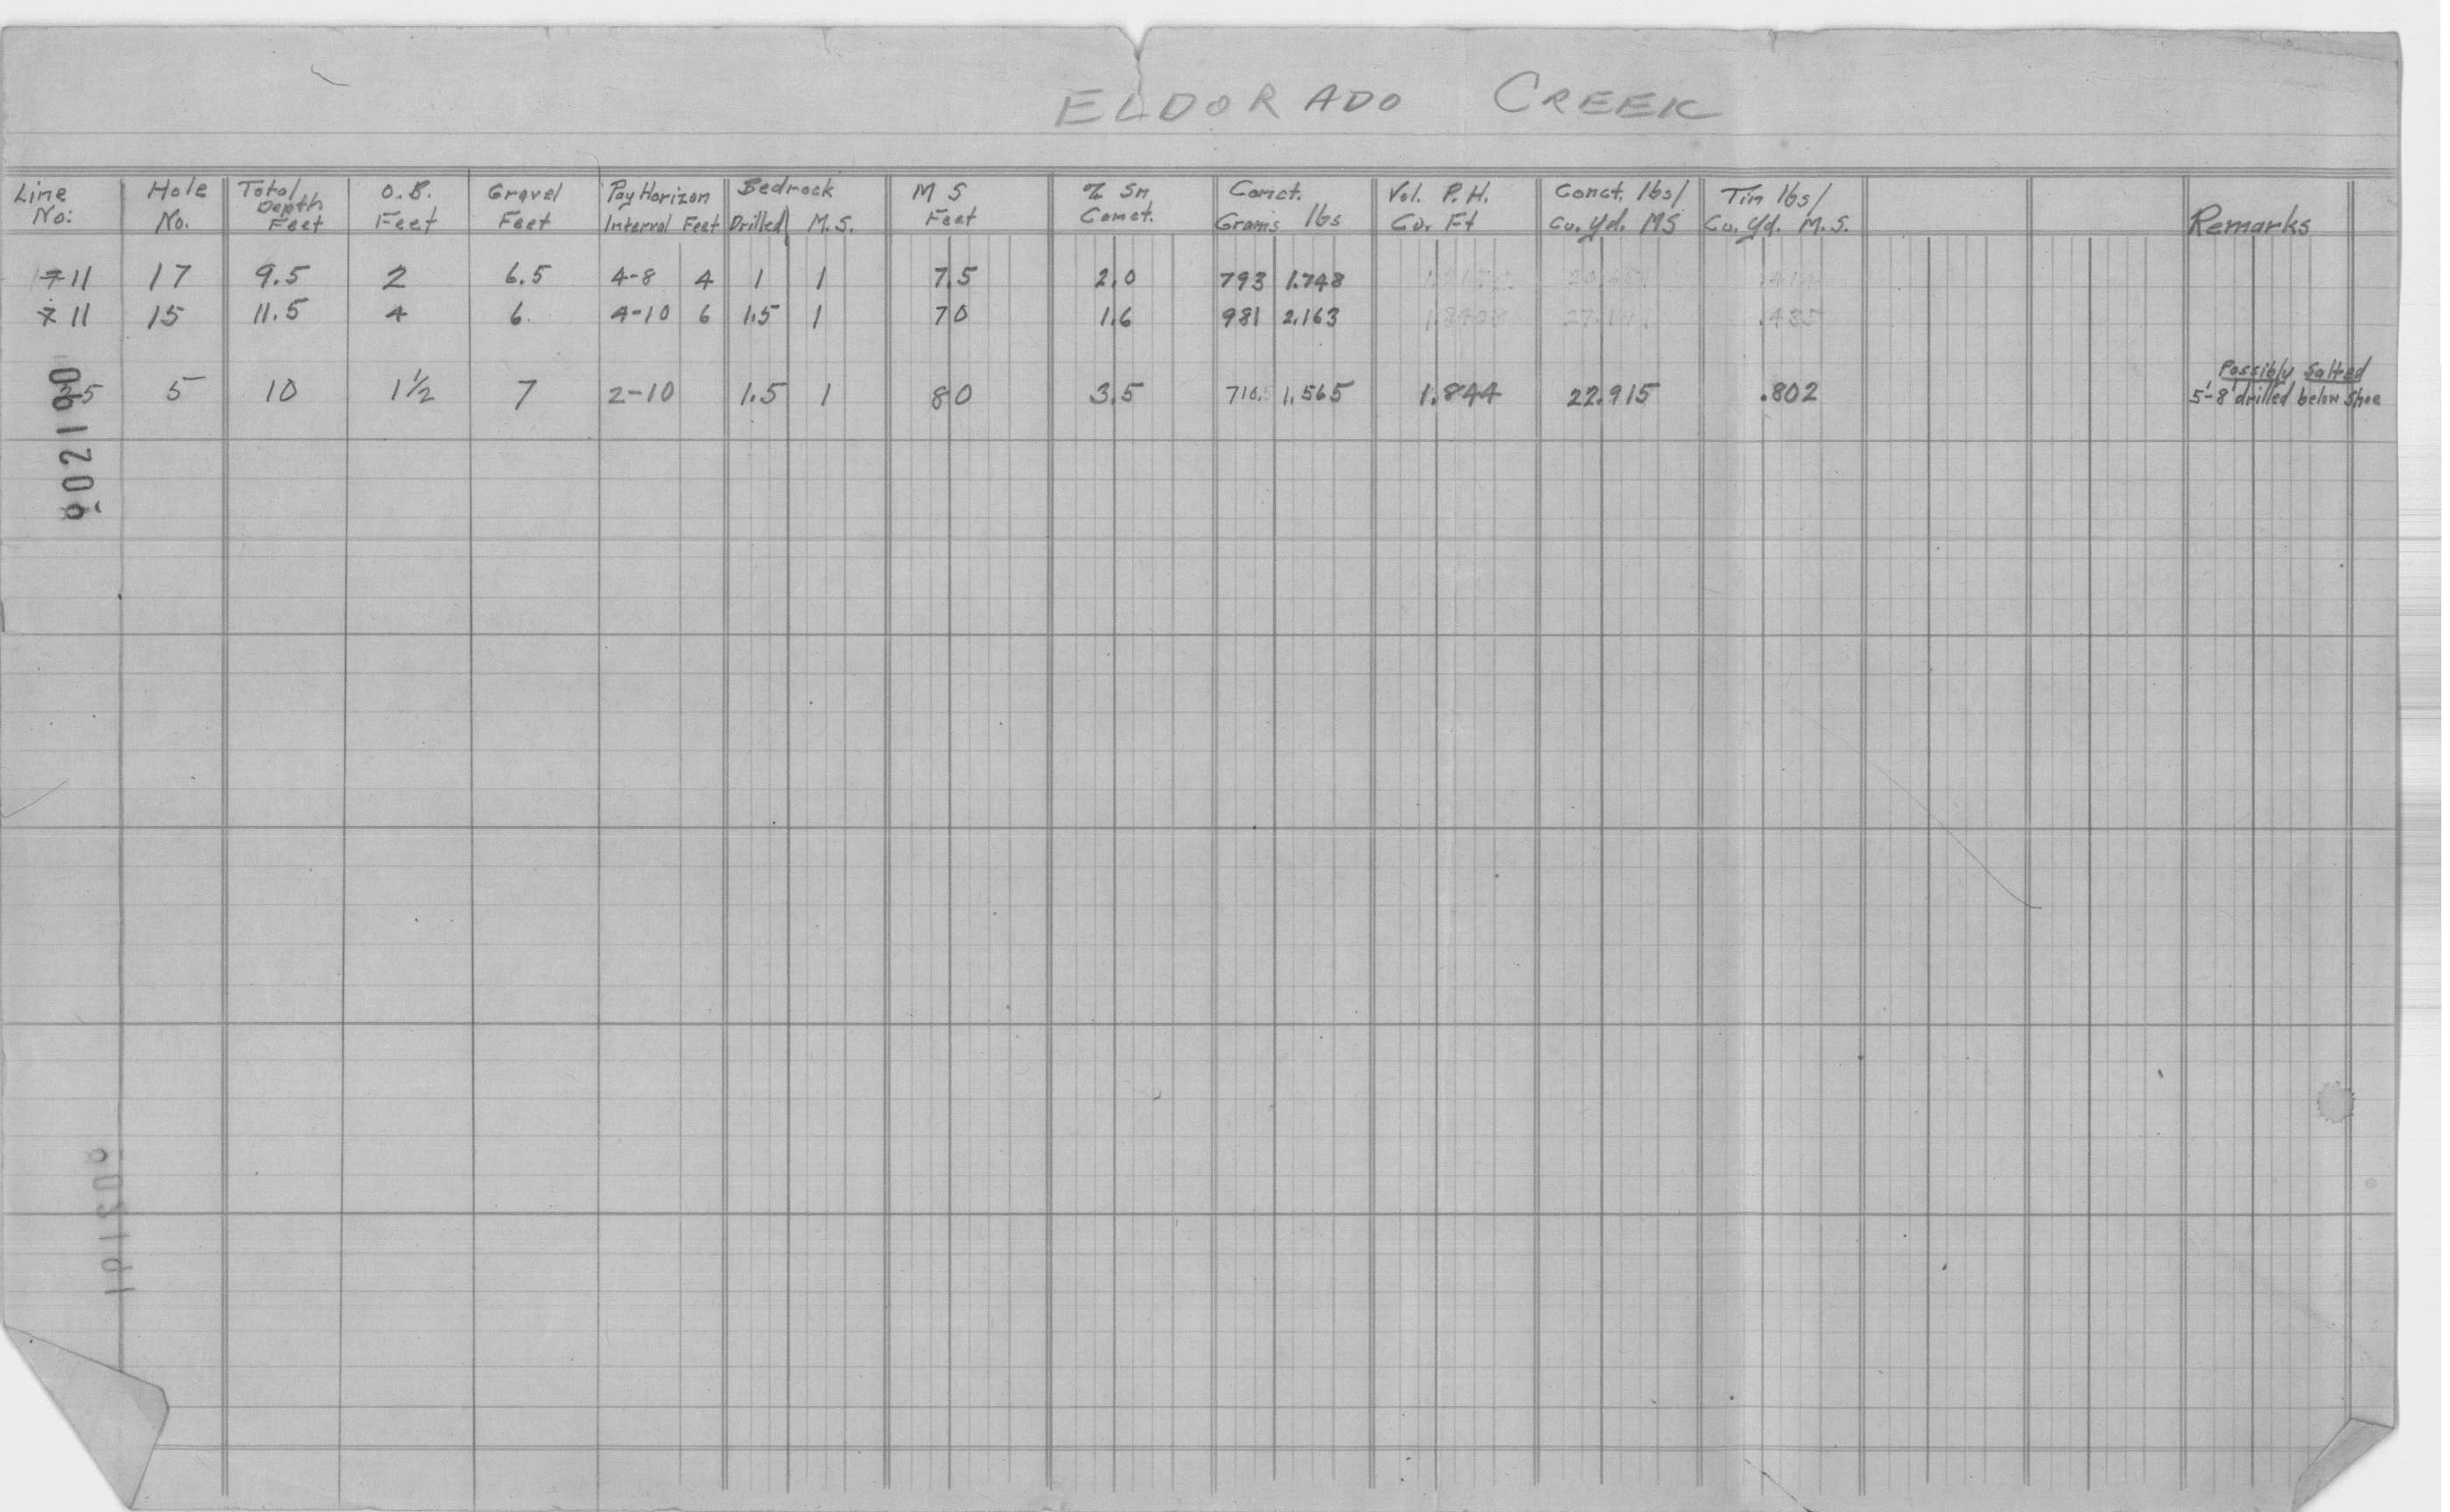 ELDORADO CREEK
Line No: Hole No. Total Depth Feet O.B. Feet Gravel Feet Pay Horizon Interval Feet Bedrock Drilled M.S. M S Feet % Sn Conct. Conct. Grams lbs Vol. P.H. Cu. Ft Conct. lbs/ Cu. Yd. MS Tin lbs/ Cu. Yd. M.S. Remarks
11 17 9.5 2 6.5 4-8 4 1 1 7.5 2.0 793 1.748
11 15 11.5 4 6 4-10 6 1.5 1 70 1.6 981 2.163 .435
5 10 1½ 7 2-10 1.5 1 80 3.5 710.5 1.565 1.844 22.915 .802 Possibly Salted
5'-8' drilled below shoe
802190
802191